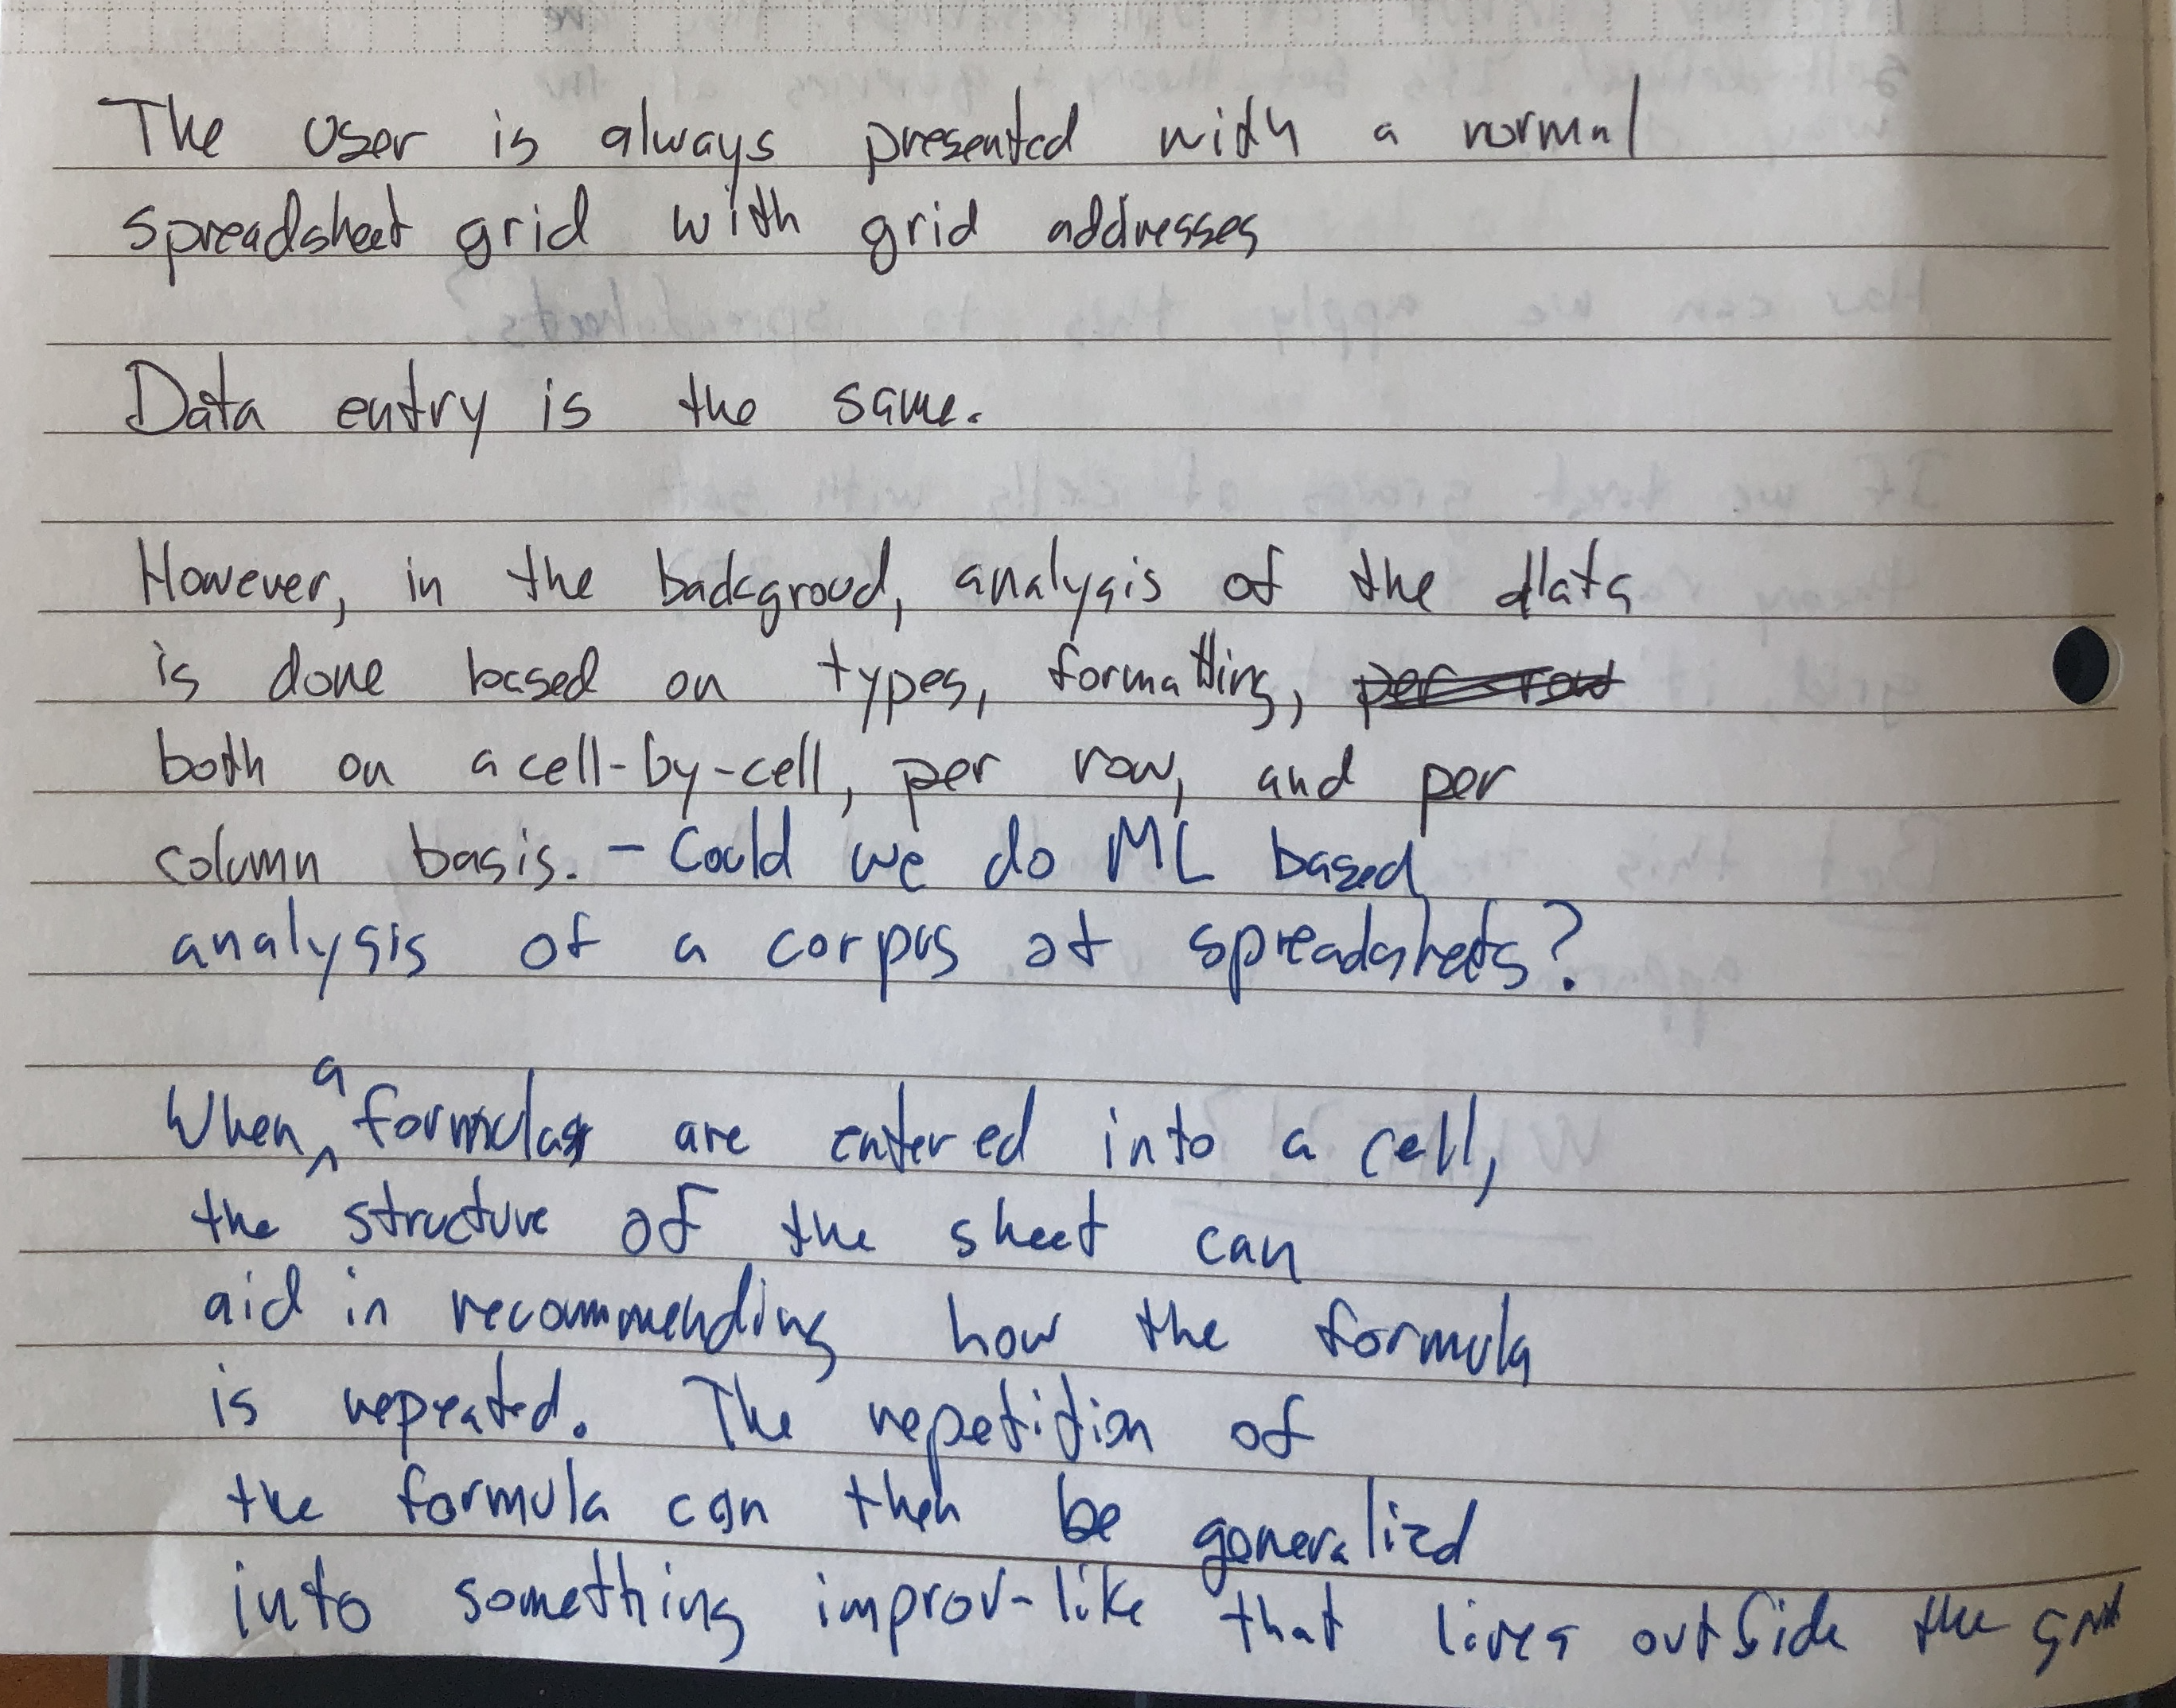 The user is always presented with a normal
spreadsheet grid with grid addresses
Data entry is the same.
However, in the backgroud, analysis of the data
is done based on types, formatting, per row
both on a cell-by-cell, per row, and per
column basis. - Could we do ML based
analysis of a corpus of spreadsheets?
When a formula are entered into a cell,
the structure of the sheet can
aid in recommending how the formula
is repeated. The repetition of
the formula can then be generalized
into something improv-like that lives outside the grid